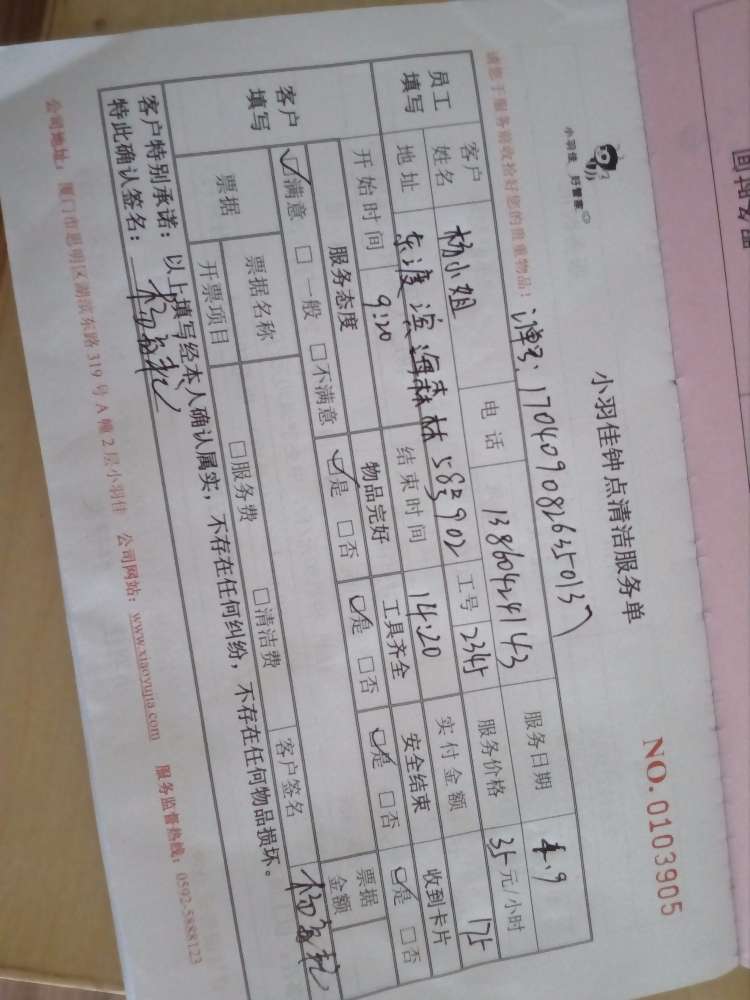 小羽佳 好管家
小羽佳钟点清洁服务单
NO.0103905
请您于服务前收拾好您的贵重物品!
单号:1704090826350137
员工填写
客户姓名 杨小姐 电话 13860424143 服务日期 4.9
地址 东渡滨海森林 902 工号 2345 服务价格 35元/小时
开始时间 9:20 结束时间 14:20 实付金额 175
客户填写
服务态度 物品完好 工具齐全 安全结束 收到卡片
☑满意 □一般 □不满意 ☑是 □否 ☑是 □否 ☑是 □否 ☑是 □否
票据 票据名称 □服务费 □清洁费 票据金额
开票项目 客户签名 杨
客户特别承诺:以上填写经本人确认属实,不存在任何纠纷,不存在任何物品损坏。
特此确认签名: 杨
公司地址:厦门市思明区湖滨东路319号A幢2层小羽佳 公司网站:www.xiaoyujia.com 服务监督热线:0592-5888123